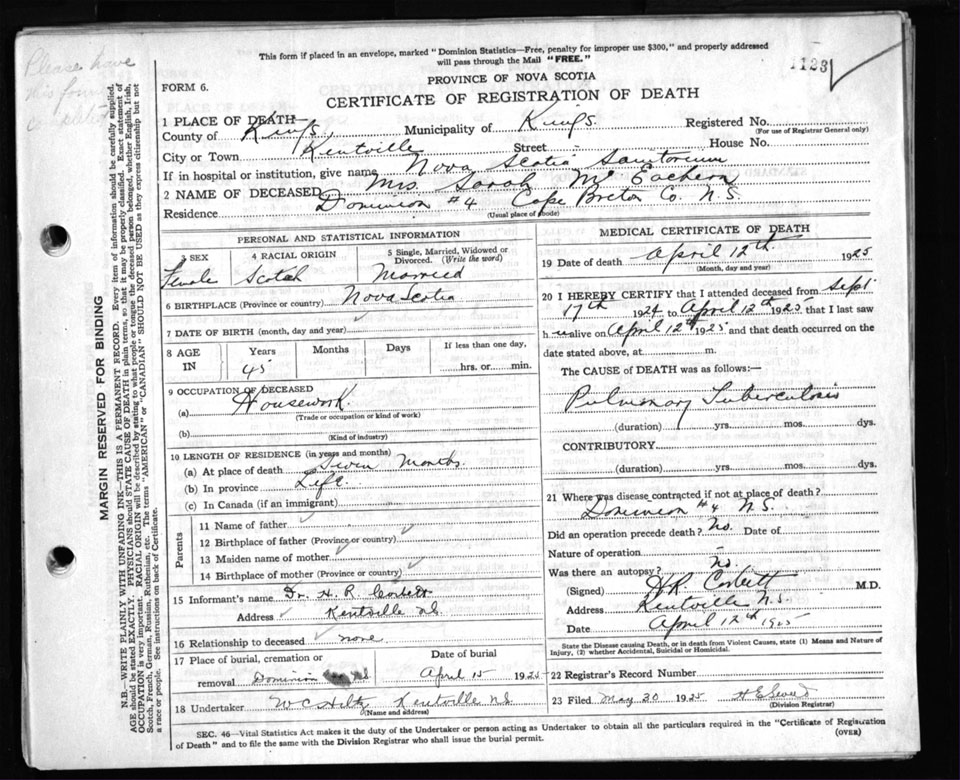 Please have
this form
This form if placed in an envelope, marked "Dominion Statistics—Free, penalty for improper use $300," and properly addressed
will pass through the Mail "FREE."
1123
PROVINCE OF NOVA SCOTIA
FORM 6.
CERTIFICATE OF REGISTRATION OF DEATH
1 PLACE OF DEATH
County of Kings, Municipality of Kings Registered No.
(For use of Registrar General only)
City or Town Kentville Street House No.
If in hospital or institution, give name Nova Scotia Sanitorium
2 NAME OF DECEASED Mrs. Sarah McEachern
Residence Dominion #4 Cape Breton Co. N.S.
(Usual place of abode)
PERSONAL AND STATISTICAL INFORMATION
3 SEX 4 RACIAL ORIGIN 5 Single, Married, Widowed or Divorced. (Write the word)
Female Scotch Married
6 BIRTHPLACE (Province or country) Nova Scotia
7 DATE OF BIRTH (month, day and year)
8 AGE IN Years Months Days If less than one day,
45 hrs. or min.
9 OCCUPATION OF DECEASED
(a) Housework
(Trade or occupation or kind of work)
(b)
(Kind of industry)
10 LENGTH OF RESIDENCE (in years and months)
(a) At place of death Seven Months.
(b) In province Life.
(c) In Canada (if an immigrant)
Parents
11 Name of father
12 Birthplace of father (Province or country)
13 Maiden name of mother
14 Birthplace of mother (Province or country)
15 Informant's name Dr. H. R. Corbett
Address Kentville N.S.
16 Relationship to deceased none
17 Place of burial, cremation or Date of burial
removal Dominion April 15 1925
18 Undertaker W C Hiltz Kentville N.S.
(Name and address)
MEDICAL CERTIFICATE OF DEATH
19 Date of death April 12th 1925
(Month, day and year)
20 I HEREBY CERTIFY that I attended deceased from Sept
17th 1924 to April 12th 1925 that I last saw
h alive on April 12th 1925 and that death occurred on the
date stated above, at m.
The CAUSE of DEATH was as follows:—
Pulmonary Tuberculosis
(duration) yrs. mos. dys.
CONTRIBUTORY.
(duration) yrs. mos. dys.
21 Where was disease contracted if not at place of death?
Dominion #4 N.S.
Did an operation precede death? No. Date of
Nature of operation
Was there an autopsy? No.
(Signed) H R Corbett M.D.
Address Kentville N.S.
Date April 12th 1925
State the Disease causing Death, or in death from Violent Causes, state (1) Means and Nature of
Injury, (2) whether Accidental, Suicidal or Homicidal.
22 Registrar's Record Number
23 Filed May 30 1925
(Division Registrar)
SEC. 46—Vital Statistics Act makes it the duty of the Undertaker or person acting as Undertaker to obtain all the particulars required in the "Certificate of Registration
of Death" and to file the same with the Division Registrar who shall issue the burial permit. (OVER)
MARGIN RESERVED FOR BINDING
N.B.—WRITE PLAINLY WITH UNFADING INK—THIS IS A PERMANENT RECORD. Every item of information should be carefully supplied.
AGE should be stated EXACTLY. PHYSICIANS should STATE CAUSE OF DEATH in plain terms, so that it may be properly classified. Exact statement of
OCCUPATION is very important. RACIAL ORIGIN will be described by stating to what people or tongue the deceased person belonged, whether English, Irish,
Scotch, French, German, Russian, Ruthenian, etc. The terms "AMERICAN" or "CANADIAN" SHOULD NOT BE USED as they express citizenship but not
a race or people. See instructions on back of Certificate.